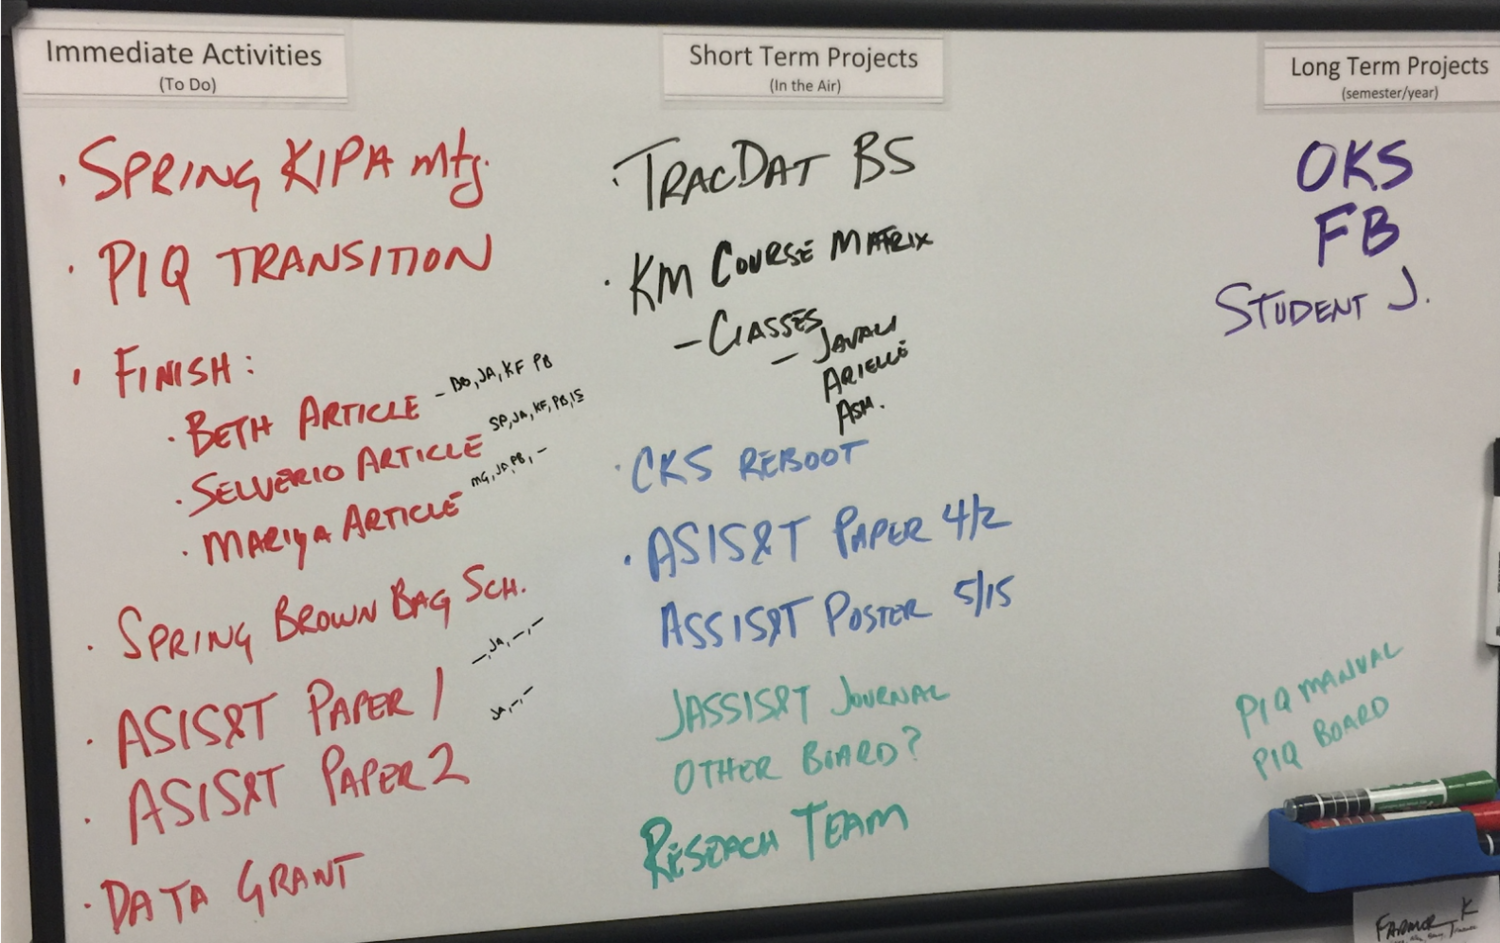 Immediate Activities
(To Do)
· SPRING KIPA mtg.
· PIQ TRANSITION
· FINISH:
· BETH ARTICLE - DO, JA, KF PB
· SELVERIO ARTICLE SP, JA, KF, PB, IS
· MARIYA ARTICLE MG, JA, PB, -
· SPRING BROWN BAG SCH.
· ASIS&T PAPER 1 -, JA, -, -
· ASIS&T PAPER 2 JA, -, -
· DATA GRANT
Short Term Projects
(In the Air)
· TRACDAT BS
· KM COURSE MATRIX
- CLASSES
- JAVALI
ARIELLE
ASH.
· CKS REBOOT
· ASIS&T PAPER 4/2
ASSIS&T POSTER 5/15
JASSIS&T JOURNAL
OTHER BOARD?
RESEACH TEAM
Long Term Projects
(semester/year)
OKS
FB
STUDENT J.
PIQ MANUAL
PIQ BOARD
FARMER K